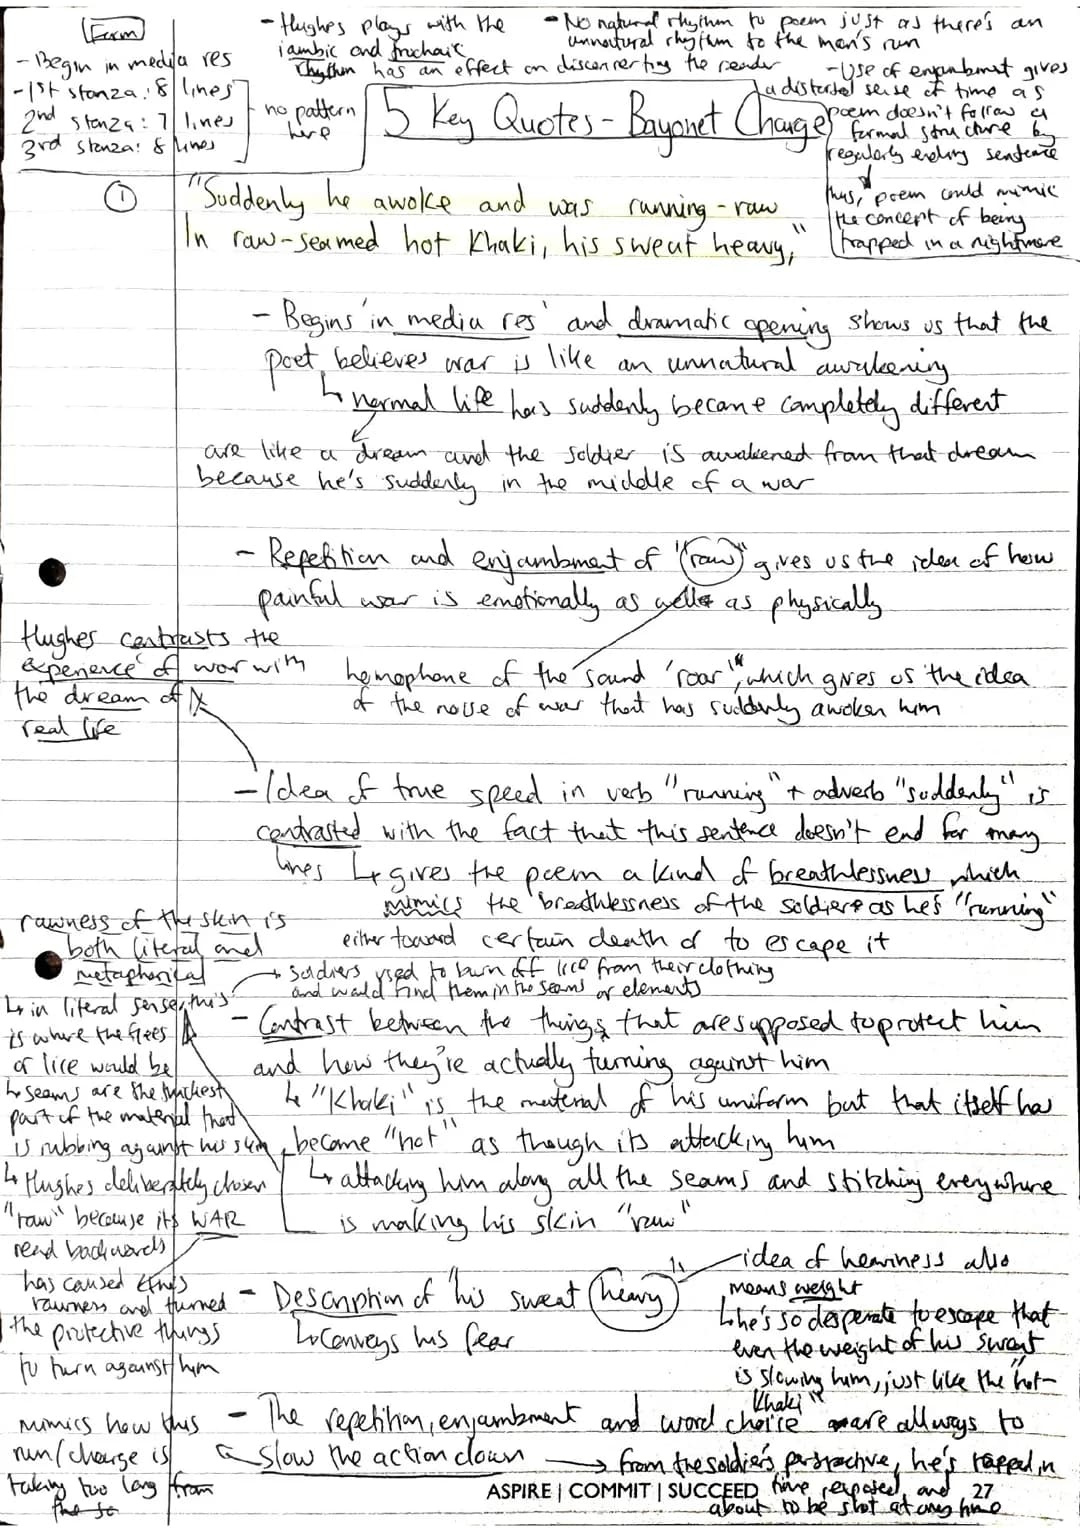 Form
- Begin in media res
- 1st stanza: 8 lines
2nd stanza: 7 lines
3rd stanza: 8 lines
no pattern
here
- Hughes plays with the
iambic and trochaic
rhythm has an effect on disconnerting the reader
- No natural rhythm to poem just as there's an
unnatural rhythm to the man's run
- Use of enjambment gives
a distorted sense of time as
poem doesn't follow a
formal structure by
regularly ending sentence
thus, poem could mimic
the concept of being
trapped in a nightmare
5 Key Quotes - Bayonet Charge
1
"Suddenly he awoke and was running - raw
In raw-seamed hot Khaki, his sweat heavy,"
- Begins 'in media res' and dramatic opening shows us that the
poet believes war is like an unnatural awakening
↳ normal life has suddenly became completely different
are like a dream and the soldier is awakened from that dream
because he's suddenly in the middle of a war
- Repetition and enjambment of "raw" gives us the idea of how
painful war is emotionally as well as physically
homophone of the sound 'roar'", which gives us the idea
of the noise of war that has suddenly awoken him
Hughes contrasts the
experience of war with
the dream of
real life
- Idea of true speed in verb "running" + adverb "suddenly" is
contrasted with the fact that this sentence doesn't end for many
lines ↳ gives the poem a kind of breathlessness which
mimics the breathlessness of the soldiers as he's "running"
either toward certain death or to escape it
rawness of the skin is
both literal and
metaphorical
→ soldiers used to burn off lice from their clothing
and would find them in the seams or elements
↳ in literal sense, this
is where the flees
or lice would be
↳ seams are the thickest
part of the material that
is rubbing against his skin
↳ Hughes deliberately chosen
"raw" because its WAR
read backwards
has caused this
rawness and turned
the protective things
to turn against him
- Contrast between the things that are supposed to protect him
and how they're actually turning against him
↳ "Khaki" is the material of his uniform but that itself has
become "hot" as though its attacking him
↳ attacking him along all the seams and stitching everywhere
is making his skin "raw"
- Description of "his sweat heavy"
↳ Conveys his fear
idea of heaviness also
means weight
↳ he's so desperate to escape that
even the weight of his sweat
is slowing him, just like the "hot-
Khaki"
- The repetition, enjambment and word choice are all ways to
slow the action down → from the soldier's perspective, he's trapped in
time, exposed, and
about to be shot at any time
mimics how this
run/charge is
taking too long from
the so
ASPIRE | COMMIT | SUCCEED
27